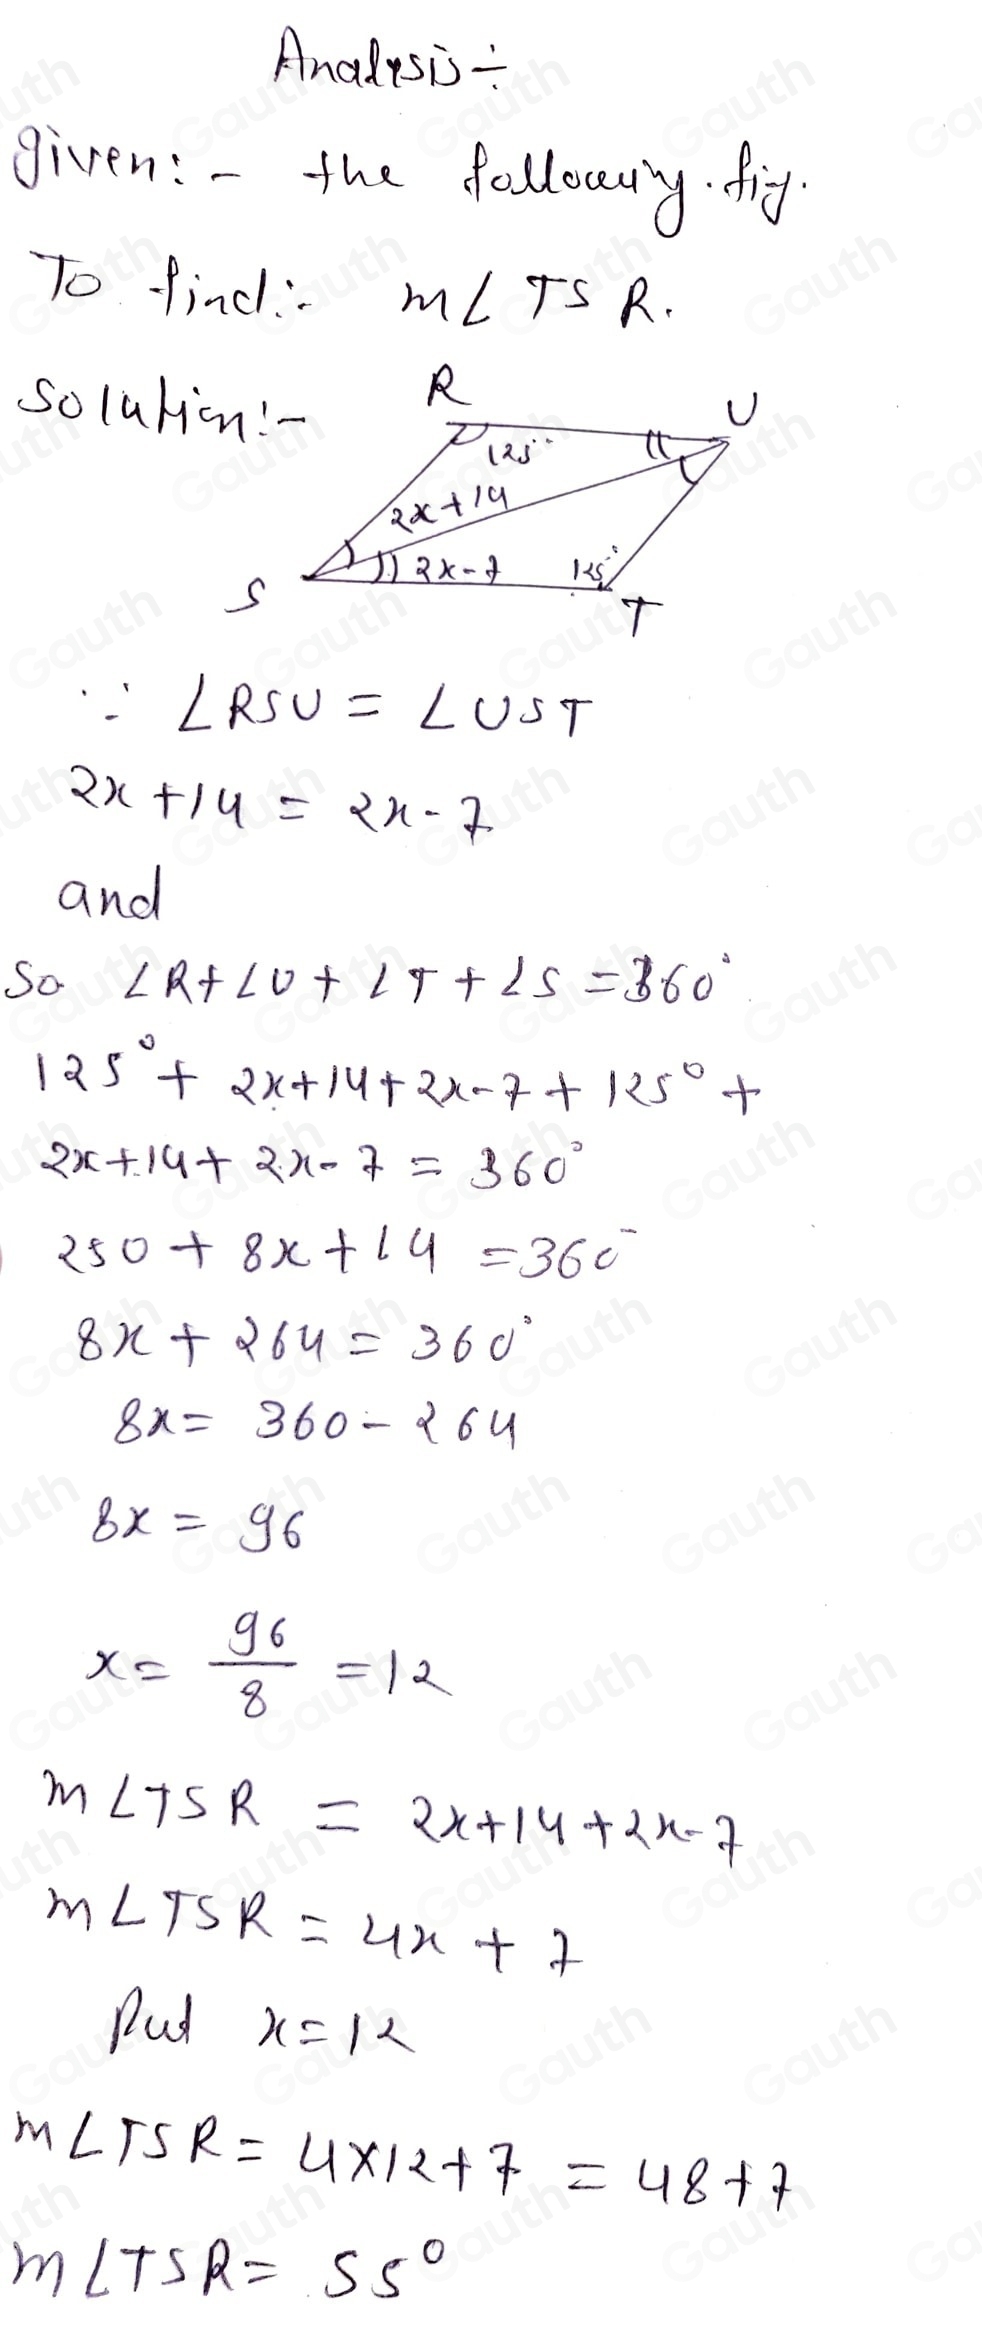 Analysis ÷
given:- the following. fig.
To find:- m∠TSR.
Solution:-
R
U
125°
2x+14
2x-7
125°
S
T
∵ ∠RSU = ∠UST
2x+14 = 2x-7
and
So ∠R+∠U+∠T+∠S = 360°
125°+ 2x+14+2x-7+125°+
2x+14+2x-7 = 360°
250 + 8x+14 = 360
8x + 264 = 360°
8x = 360-264
8x = 96
x = 96/8 = 12
m∠TSR = 2x+14+2x-7
m∠TSR = 4x + 7
Put x=12
m∠TSR = 4×12+7 = 48+7
m∠TSR = 55°